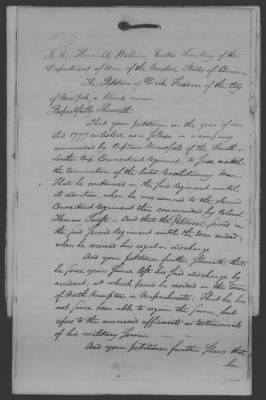 To the Honorable William Eustis Secretary of the
Department of War of the United States of America
The Petition of Dick Freedom of the City
of New York, a black man
Respectfully Sheweth
That your petitioner in the year of our
Lord 1777 enlisted as a in a company
commanded by Captain of the fourth or
Connecticut Regiment, to serve until
the termination of the late Revolutionary War.
That he continued in the said Regiment until
its when he was removed to the Second
Connecticut regiment then commanded by Colonel
Heman Swift. And that the Petitioner served in
the said Second Regiment until the war ended
when he received his regular discharge
And your petitioner further Sheweth that
he some years since lost his said discharge by
accident, at which period he resided in the town
of North Hampton in Massachusetts. That he has
not since been able to regain the same, but
refers to the annexed affidavits as testimonials
of his military Service
And your petitioner further Shews that
he